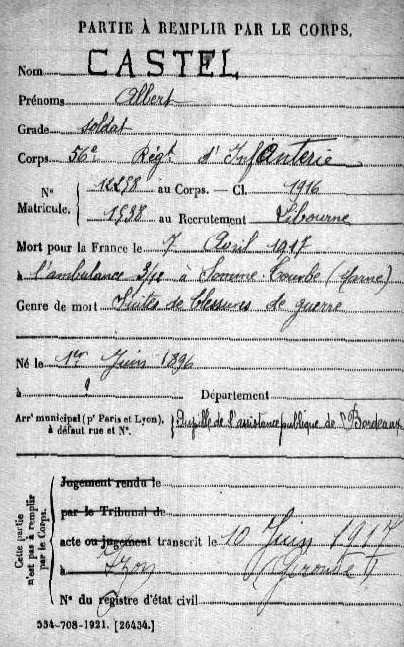 PARTIE À REMPLIR PAR LE CORPS.
Nom CASTEL
Prénoms Albert
Grade soldat
Corps 56e Régt d'Infanterie
N° Matricule. 12258 au Corps. — Cl. 1916
1538 au Recrutement Libourne
Mort pour la France le 7 Avril 1917
à l'ambulance 3/12 à Somme-Tourbe (Marne)
Genre de mort Suites de blessures de guerre
Né le 1er Juin 1896
à ? Département
Arrt municipal (pr Paris et Lyon), à défaut rue et N°. Pupille de l'assistance publique de Bordeaux
Cette partie n'est pas à remplir par le Corps.
Jugement rendu le
par le Tribunal de
acte ou jugement transcrit le 10 Juin 1917
à Izon (Gironde)
N° du registre d'état civil
534-708-1921. [26434.]